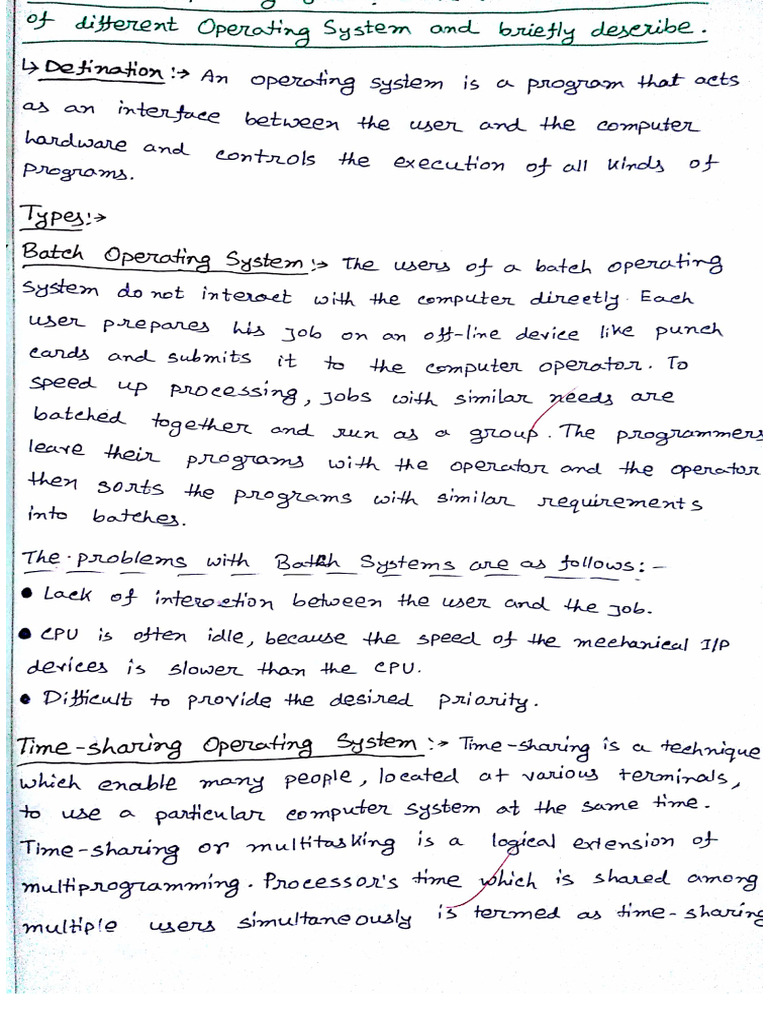 of different Operating System and briefly describe.
↳ Defination :→ An operating system is a program that acts
as an interface between the user and the computer
hardware and controls the execution of all kinds of
programs.
Types :→
Batch Operating System :→ The users of a batch operating
system do not interact with the computer directly. Each
user prepares his job on an off-line device like punch
cards and submits it to the computer operator. To
speed up processing, jobs with similar needs are
batched together and run as a group. The programmers
leave their programs with the operator and the operator
then sorts the programs with similar requirements
into batches.
The problems with Batch Systems are as follows :-
• Lack of interaction between the user and the job.
• CPU is often idle, because the speed of the mechanical I/P
devices is slower than the CPU.
• Difficult to provide the desired priority.
Time-sharing Operating System :→ Time-sharing is a technique
which enable many people, located at various terminals,
to use a particular computer system at the same time.
Time-sharing or multitasking is a logical extension of
multiprogramming. Processor's time which is shared among
multiple users simultaneously is termed as time-sharing